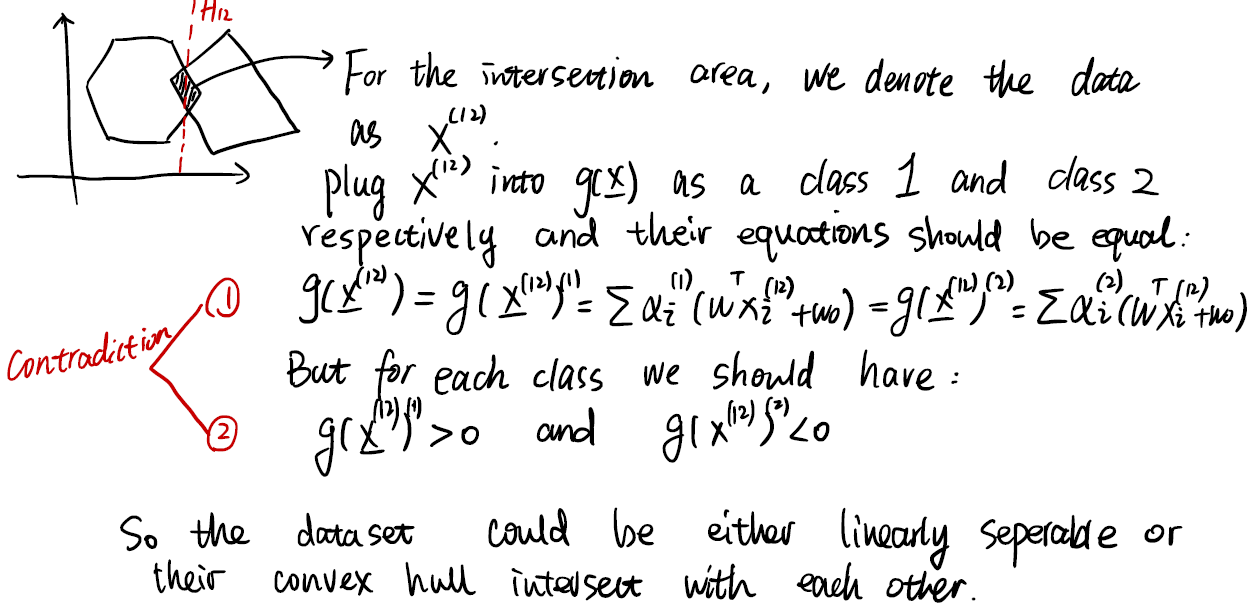 H₁₂
For the intersection area, we denote the data
as X⁽¹²⁾.
plug X⁽¹²⁾ into g(x̲) as a class 1 and class 2
respectively and their equations should be equal:
① g(x̲⁽¹²⁾) = g(x̲⁽¹²⁾)⁽¹⁾ = Σ αᵢ⁽¹⁾(wᵀxᵢ⁽¹²⁾+w₀) = g(x̲⁽¹²⁾)⁽²⁾ = Σ αᵢ⁽²⁾(wᵀxᵢ⁽¹²⁾+w₀)
Contradiction
But for each class we should have:
② g(x̲⁽¹²⁾)⁽¹⁾ >0 and g(x⁽¹²⁾)⁽²⁾ <0
So the dataset could be either linearly seperable or
their convex hull intersect with each other.